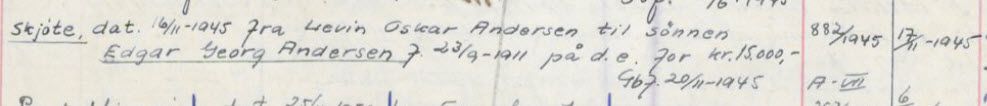 Skjøte, dat. 16/11-1945 fra Levin Oskar Andersen til sönnen 882/1945 17/11-1945
Edgar Georg Andersen f. 23/9-1911 på d.e. for kr. 15.000,-
Gbf. 20/11-1945 A-VIII